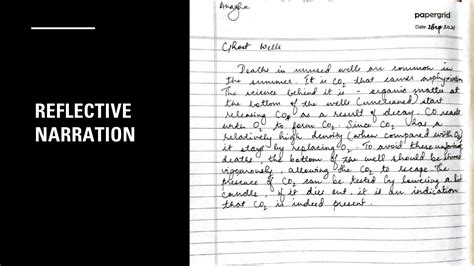 REFLECTIVE
NARRATION
Anagha
papergrid
Date:
Ghost Wells
Deaths in unused wells are common in
the summer. It is CO₂ that causes asphyxiation
The science behind it is - organic matter at
the bottom of the well (uncleaned) start
releasing CO as a result of decay. CO reacts
with O₂ to form CO₂. Since CO₂ has a
relatively high density (when compared with O₂)
it stays by replacing O₂. To avoid these unfortunate
deaths, the bottom of the well should be stirred
vigorously, allowing the CO₂ to escape. The
presence of CO₂ can be tested by lowering a lit
candle, if it dies out, it is an indication
that CO₂ is indeed present.